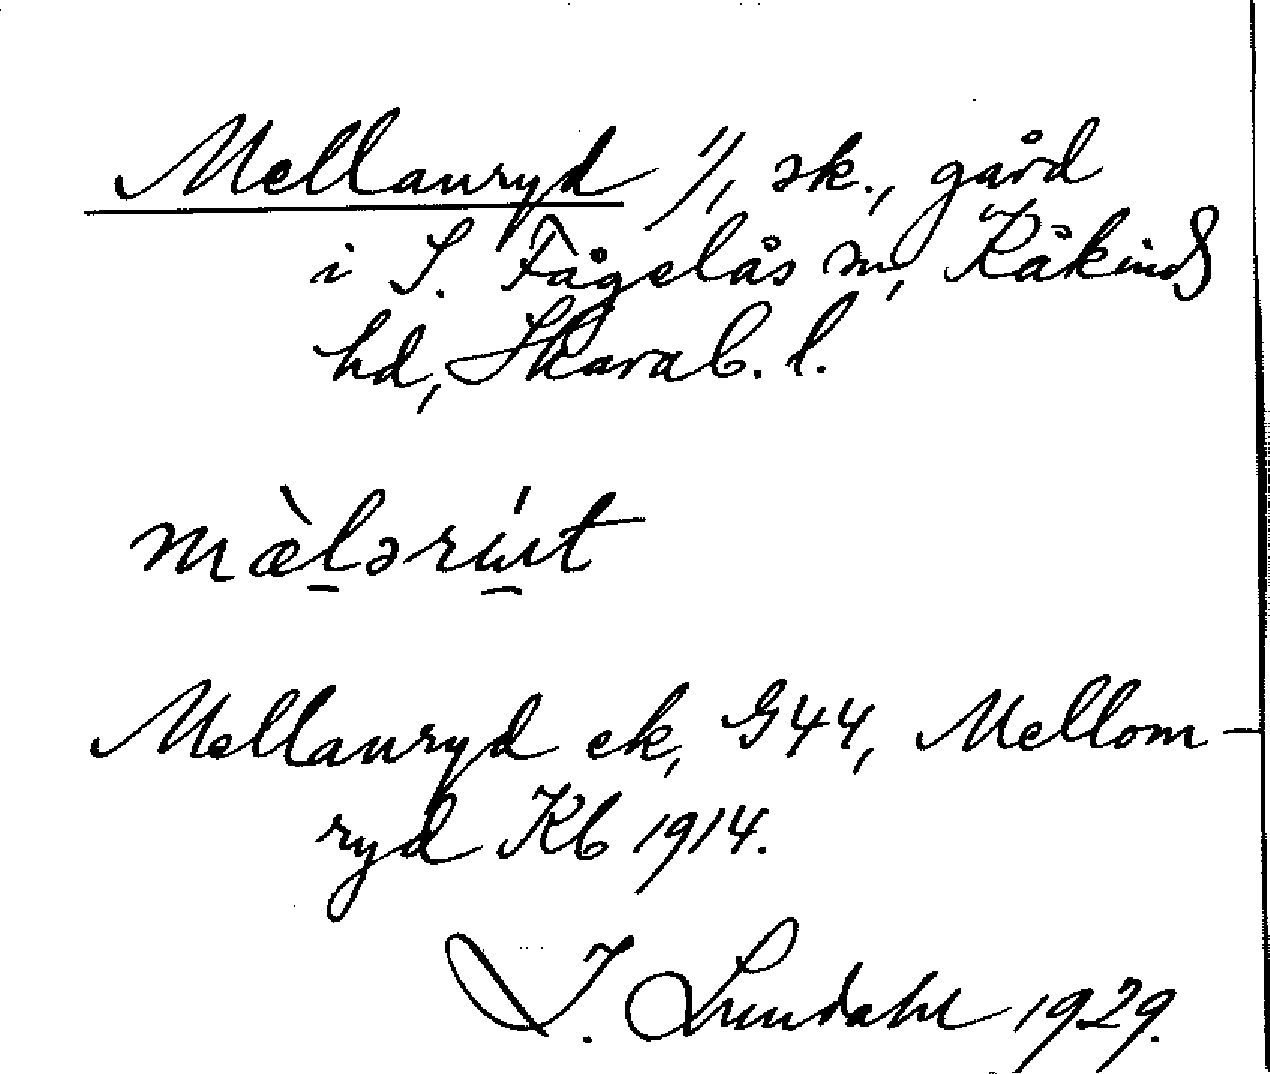 Mellanryd 1/1 sk., gård
i S. Fågelås sn, Kåkinds
hd, Skarab. l.
mæ̀l̠ərút
Mellanryd ek, G44, Mellom-
ryd Kb 1914.
I. Lundahl 1929.